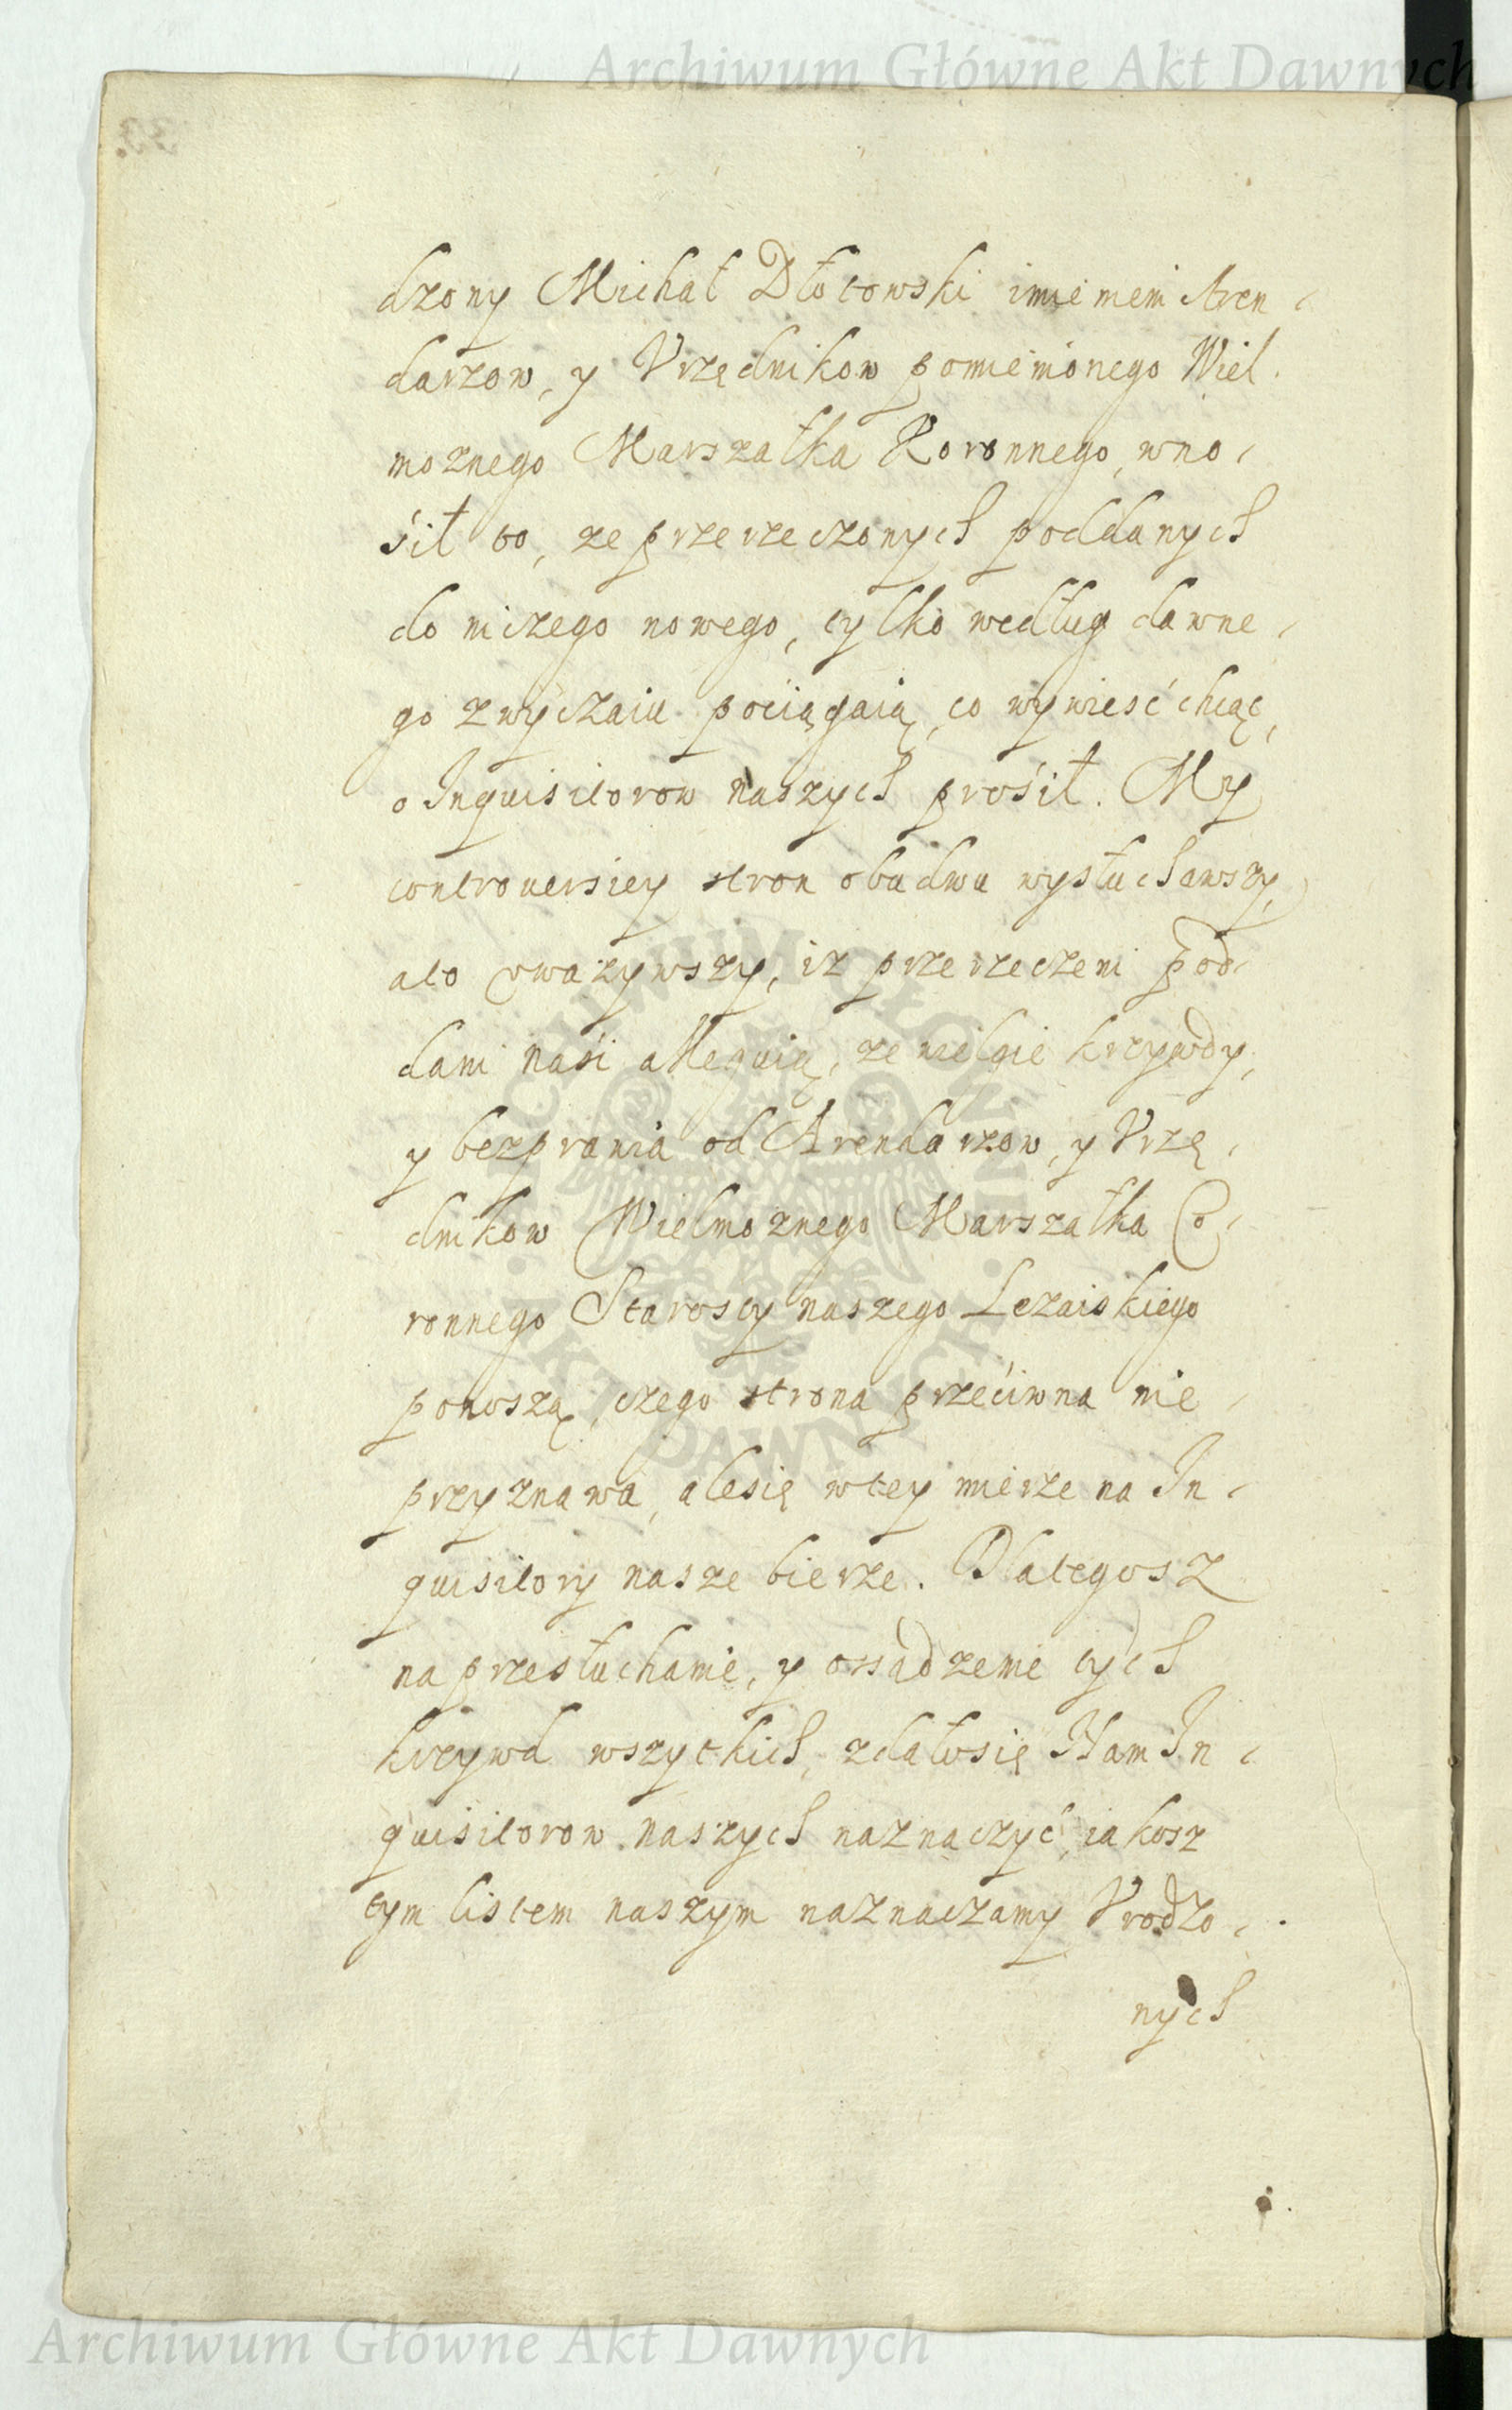 Archiwum Główne Akt Dawnych
dzony Michał Dłotowski imieniem Aren-
darzow, y Vrzędnikow pomienionego Wiel.
możnego Marszałka Koronnego, wno-
śił to, ze przerzeczonych poddanych
do niczego nowego, tylko według dawne-
go zwyczaiu pociągaią, co wywieść chcąc,
o Inquisitorow naszych prośił. My
controuersiey stron obudwu wysłuchawszy,
a to vwazywszy, iz przerzeczeni pod-
dani naśi alleguią, ze wielgie krzywdy,
y bezprawia od Arendarzow, y Vrzę-
dnikow Wielmoznego Marszałka Co-
ronnego Starosty naszego Lezaiskiego
ponoszą, czego strona przećiwna nie-
przyznawa, alesię wtey mierze na In-
quisitory nasze bierze. Dlategosz
na przesłuchanie, y ossądzenie tych
krzywd wszytkich, zdałosię Nam In-
quisitorow naszych naznaczyć, iakosz
tym listem naszym naznaczamy Vrodzo-
nych
ARCHIWUM GŁÓWNE AKT DAWNYCH
Archiwum Główne Akt Dawnych